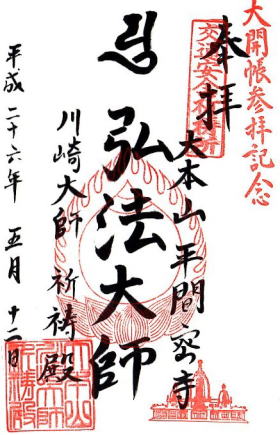 大開帳参拝記念
奉拝
交通安全祈祷所
大本山 平間寺
弘法大師
川崎大師 祈祷殿
平成二十六年 五月 十二日